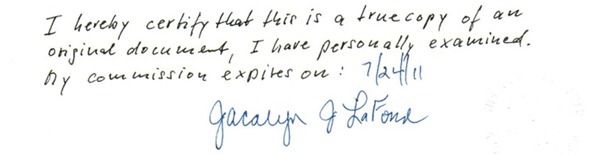 I hereby certify that this is a true copy of an
original document, I have personally examined.
My commission expires on: 7/24/11
Jacalyn J LaFond